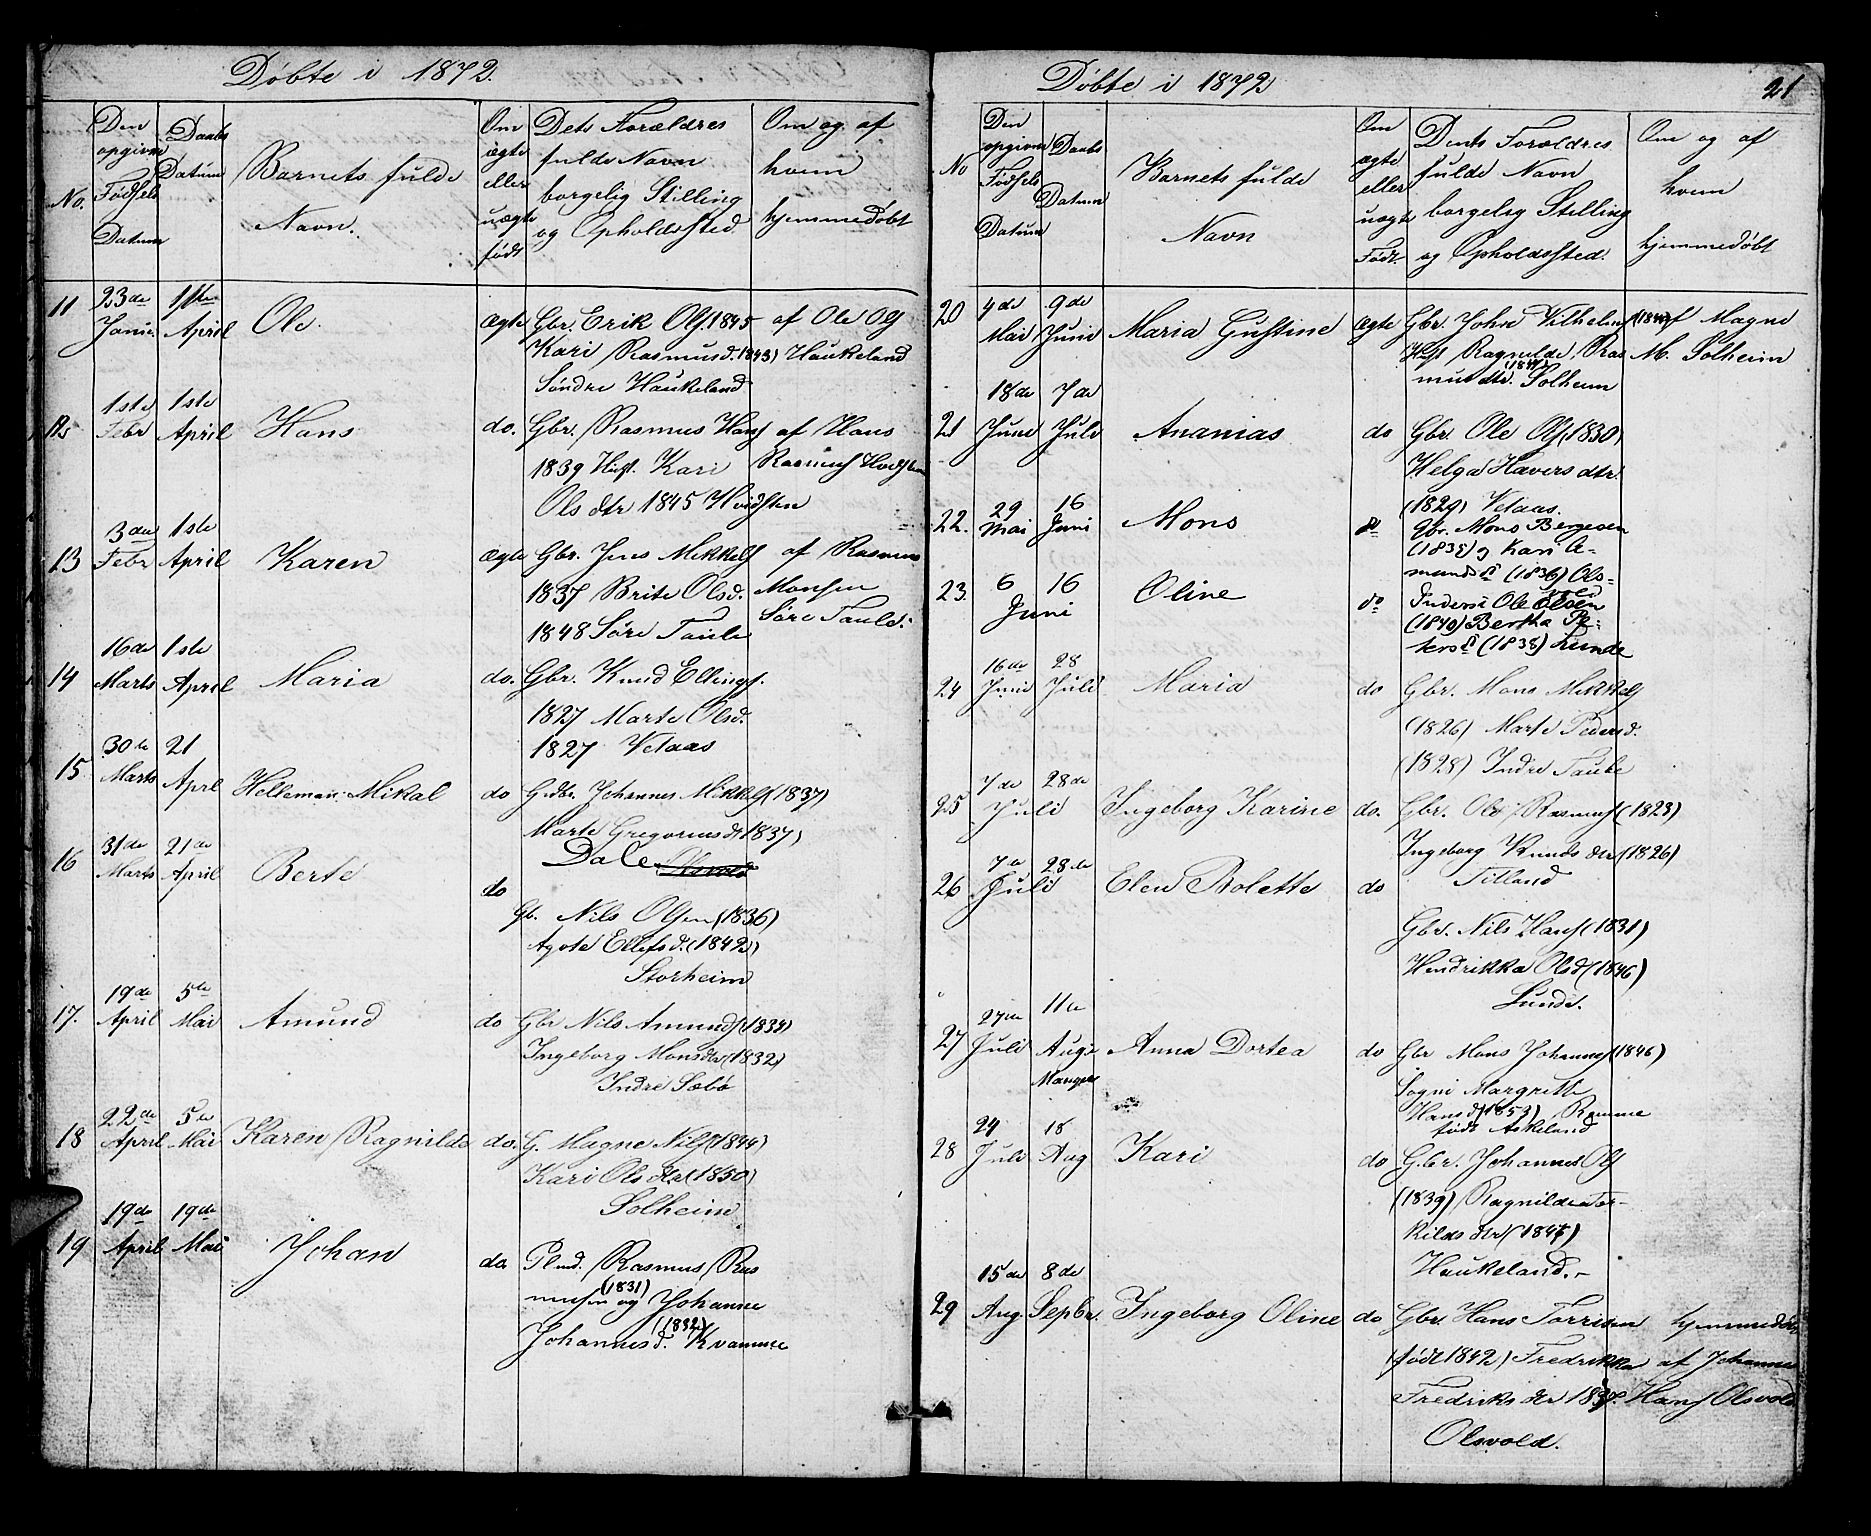 Døbte i 1872.
No.
Den opgivne Fødsels Datum
Daabs Datum
Barnets fulde Navn.
Om ægte eller uægte født
Dets Forældres fulde Navn borgelig Stilling og Opholdssted
Om og af hvem hjemmedøbt
11 23de Janu. 1ste April Ole ægte Gbr. Erik Ols. 1845 af Ole Ols
Kari Rasmusd. 1843) Haukeland
Søndre Haukeland
12 1ste Febr 1ste April Hans do. Gbr. Rasmus Hans af Hans
1839 Hust. Kari Rasmus
Ols dtr 1845 Hvidsten
13 3die Febr 1ste April Karen ægte Gbr. Jens Mikkels af Rasmus
1837 Brite Olsd. Monsen
1848 Søre Taule Søre Taule.
14 16de Marts 1ste April Maria do. Gbr. Knud Ellings.
1827 Marte Olsd.
1827 Vetaas
15 30te Marts 21 Aprl Helleman Mikal do Grdbr. Johannes Mikkels (1837)
Marte Gregorius dt 1837)
Dale
16 31de Marts 21de April Berte do
Gb. Nils Olsen (1836)
Agote Ellefs d. (1842)
Storheim
17. 19de April 5te Mai Amund do Gbr Nils Amunds (1834)
Ingeborg Monsdtr (1832)
Indre Sebø
18 22de April 5te Mai Karen Ragnilde do. G. Magne Nils (1844)
Kari Ols dtr (1850)
Solheim
19 19de April 19de Mai Johan do. Plmd. Rasmus Ras
musen (1831) og Johanne
Johannesd. (1832) Kvamme
Døbte i 1872
21
No
Den opgivne Fødsels Datum
Daabs Datum
Barnets fulde Navn
Om ægte eller uægte Født.
Dents Forældres fulde Navn borgelig Stilling og Opholdssted.
Om og af hvem hjemmedøbt
20 4de Mai 9de Juni Maria Gustine ægte Gbr. John Vilhelms (1843) af Magne
Hust Ragnilde Ras M. Solheim
mus dtr. Solheim
21 18de Juni 7de Juli Ananias do Gbr. Ole Ols (1830)
Helga Havers dtr.
(1829) Vetaas.
22. 29 Mai 16 Juni Mons do Gbr. Mons Bergesen
(1838) og Kari A-
munds d (1836) Ols-
vold
23. 6 16 Juni Oline do Inderst Ole Olsen
(1840) Bertha Pe-
ters d (1838) Lunde
24 16de Juni 28 Juli Maria do Gbr. Mons Mikkels
(1826) Marte Peders d.
(1828) Indre Taule
25 7de 28de Juli Ingeborg Karine do. Gbr. Ole Rasmus (1823)
Ingeborg Knuds dtr (1826)
Titland
26 7de 28de Juli Elen Bolette do
Gbr. Nils Hans (1831)
Hendrikka Olsd (1846)
Lunde.
27 27de Juli 11te Aug. Manger Anna Dortea do Gbr Mons Johannes (1846)
Sogni Margrethe
Hans d (1853) Ramme
født Askeland
28 24 Juli 18 Aug Kari do Gbr. Johannes Ols
(1839) Ragnilde Ter-
kilds dtr
Haukeland.-
29 15de Aug. 8de Sepbr. Ingeborg Oline do Gbr Hans Torrisen hjemmedøbt
(født 1842) Fredrikka af Johanne
Fredriks dtr Hans Olsvold
Olsvold.